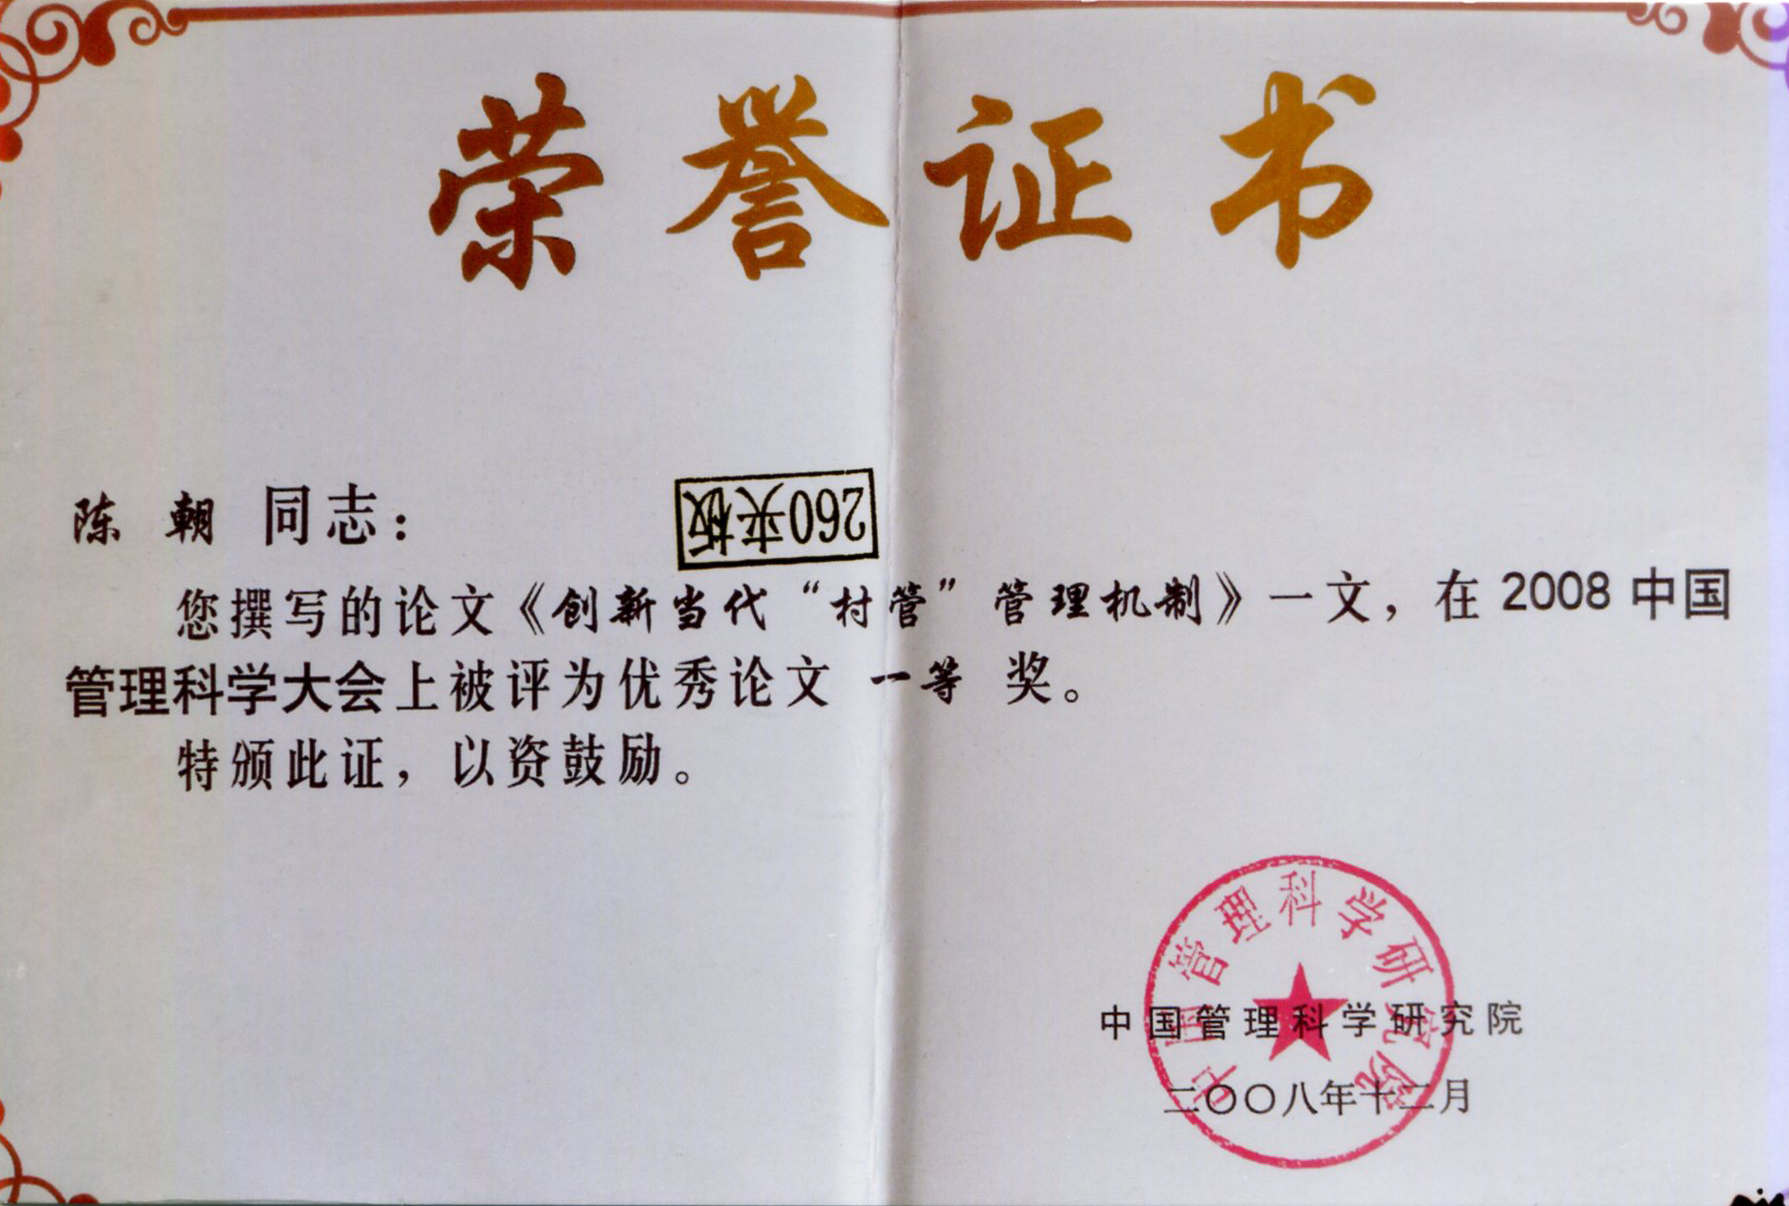 荣誉证书
陈 朝 同志：
260夹板
您撰写的论文《创新当代“村管”管理机制》一文，在 2008 中国
管理科学大会上被评为优秀论文 一等 奖。
特颁此证，以资鼓励。
中国管理科学研究院
中国管理科学研究院
二〇〇八年十二月